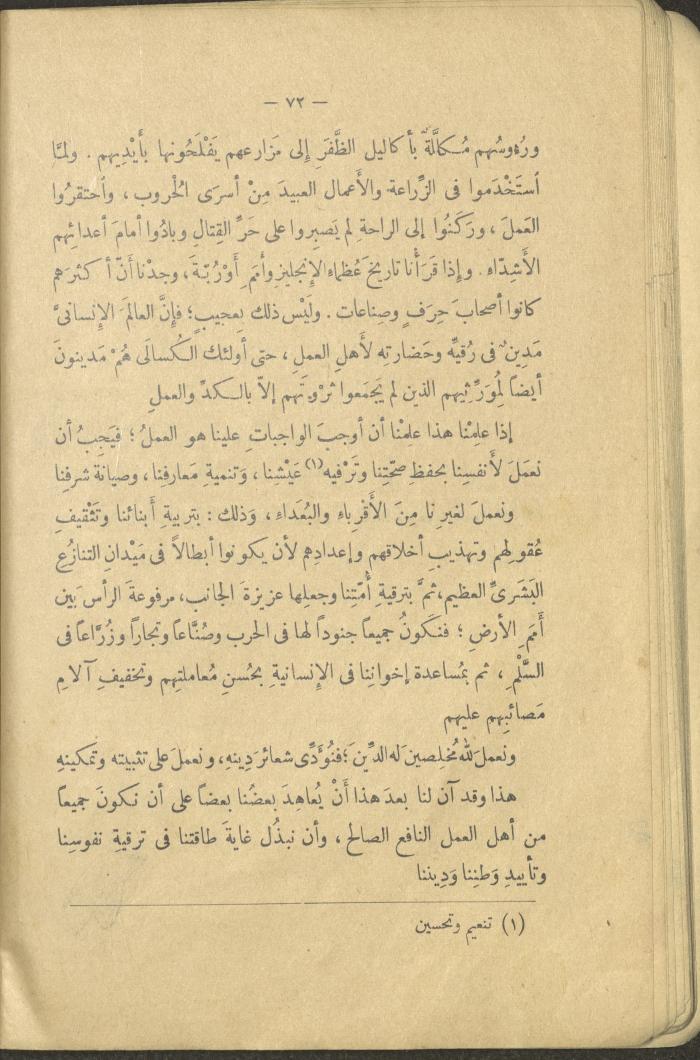 — ٧٢ —
ورُءوسُهم مُكلَّلةٌ بأكاليل الظَّفَرِ إلى مَزارعهم يَفْلَحُونها بأَيْدِيهم . ولمَّا
اُستَخْدَموا فى الزِّراعة والأَعمال العبيدَ مِنْ أسرَى الْحُروب ، واُحتقرُوا
العَملَ ، ورَكَنُوا إلى الراحةِ لم يَصبِروا على حَرِّ القِتالِ وبادُوا أمامَ أعدائهم
الأَشِدّاءِ . وإذا قَرَأْنا تاريخَ عُظماءِ الإنجليزِ وأُممِ أوْرُبّةَ ، وجدْنا أنّ أكثرَهم
كانوا أصحابَ حِرَفٍ وصِناعات . ولَيْس ذلك بِعجيبٍ؛ فإنَّ العالمَ الإنسانىَّ
مَدِينٌ فى رُقيِّه وحَضارتِه لأهلِ العملِ ، حتى أولئك الكُسالَى هُمْ مَدينونَ
أيضاً لمُورِّثيهم الذين لم يَجمَعوا ثرْوتَهم إلاّ بالكدِّ والعملِ
إذا علِمْنا هذا علِمْنا أن أوجبَ الواجباتِ علينا هو العملُ ؛ فيَجِبُ أن
نعمَلَ لأنفسِنا بحفظِ صحّتِنا وتَرْفيه (١) عَيْشِنا ، وَتنميةِ مَعارفِنا ، وصيانة شرفِنا
ونعملَ لغيرِنا مِنَ الأَقْرِباءِ والبُعَداءِ ، وَذلك : بتربيةِ أَبنائنا وتثْقيفِ
عُقولِهم وتهذيبِ أخلاقهم وإعدادِهم لأن يكونوا أبطالاً فى مَيْدانِ التنازُعِ
البَشَرىِّ العظيمِ، ثمَّ بترقيةِ أُمّتِنا وجعلِها عزيزةَ الجانب، مرفوعةَ الرأس بَين
أُممِ الأرضِ ؛ فنَكونُ جميعاً جنوداً لها فى الحرب وصُنَّاعاً وتجاراً وزُرَّاعاً فى
السِّلْمِ ، ثم بمُساعدة إخوانِنا فى الإنسانيةِ بحُسنِ مُعاملتِهم وتخفيفِ آلامِ
مَصائبِهم عليهم
ونعملَ للهِ مُخلِصين لَه الدِّينَ؛ فنُؤَدِّى شعائرَ دِينِهِ، ونعملَ على تثبيتِه وتمكينِهِ
هذا وقد آن لنا بعدَ هذا أَنْ يُعاهِدَ بعضُنا بعضاً على أن نكونَ جميعاً
من أهل العمل النافع الصالح ، وأن نبذُل غايةَ طاقتنا فى ترقيةِ نفوسِنا
وتأييدِ وَطنِنا وَدِيننا
(١) تنعيم وتحسين